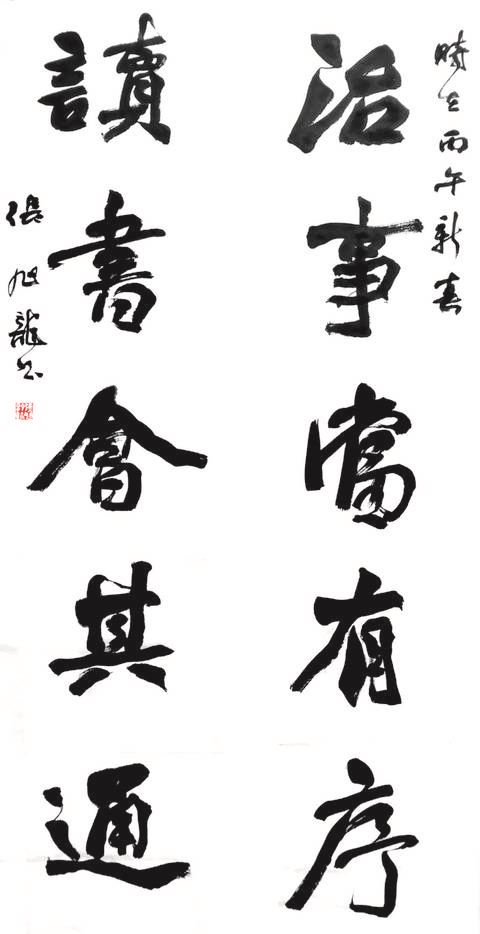 時在丙午新春
治事當有序
讀書會其通
張旭龍书